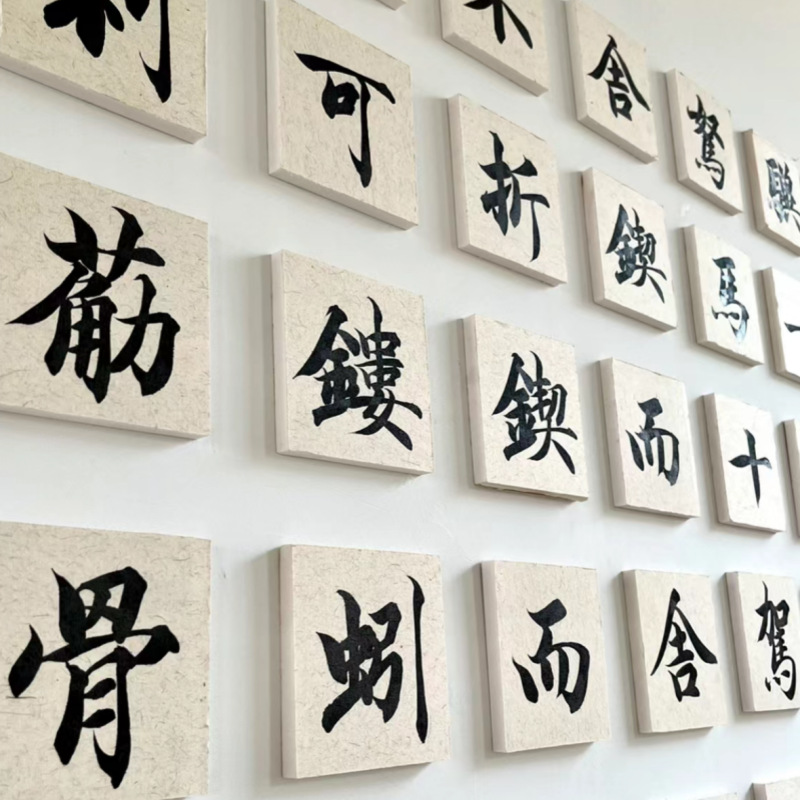 驥一
駑馬十駕
舍鍥而舍
不折鍥而
可鏤蚓
利筋骨